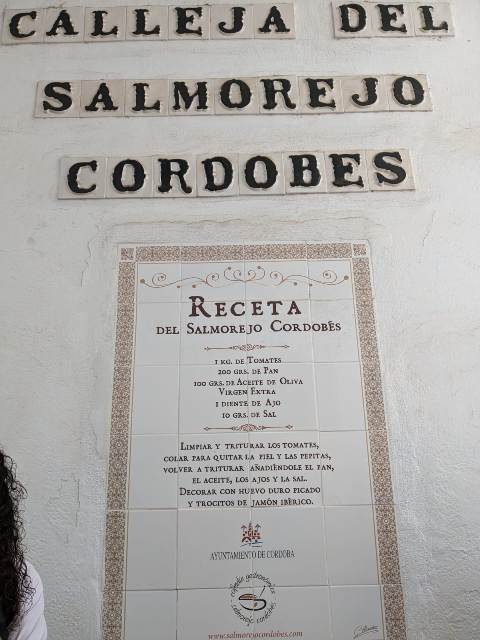 CALLEJA DEL
SALMOREJO
CORDOBES
RECETA
DEL SALMOREJO CORDOBÉS
1 KG. DE TOMATES
200 GRS. DE PAN
100 GRS. DE ACEITE DE OLIVA
VIRGEN EXTRA
1 DIENTE DE AJO
10 GRS. DE SAL
LIMPIAR Y TRITURAR LOS TOMATES,
COLAR PARA QUITAR LA PIEL Y LAS PEPITAS,
VOLVER A TRITURAR AÑADIÉNDOLE EL PAN,
EL ACEITE, LOS AJOS Y LA SAL.
DECORAR CON HUEVO DURO PICADO
Y TROCITOS DE JAMÓN IBÉRICO.
AYUNTAMIENTO DE CORDOBA
cofradía gastronómica
salmorejo cordobés
www.salmorejocordobes.com